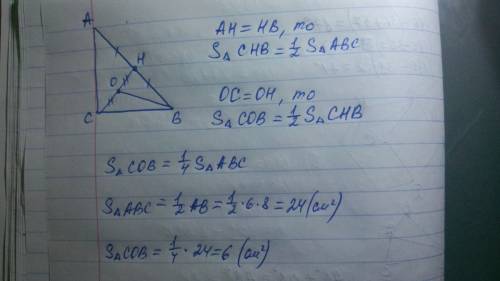 A
H
O
C
B
AH = HB, то
S△CHB = 1/2 S△ABC
OC = OH, то
S△COB = 1/2 S△CHB
S△COB = 1/4 S△ABC
S△ABC = 1/2 AB = 1/2 · 6 · 8 = 24 (см²)
S△COB = 1/4 · 24 = 6 (см²)